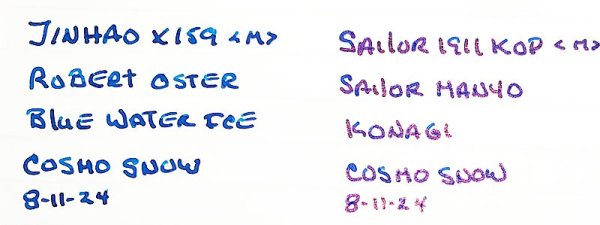 JINHAO X159 <M>
ROBERT OSTER
BLUE WATER ICE
COSMO SNOW
8-11-24
SAILOR 1911 KOP <M>
SAILOR MANYO
KONAGI
COSMO SNOW
8-11-24